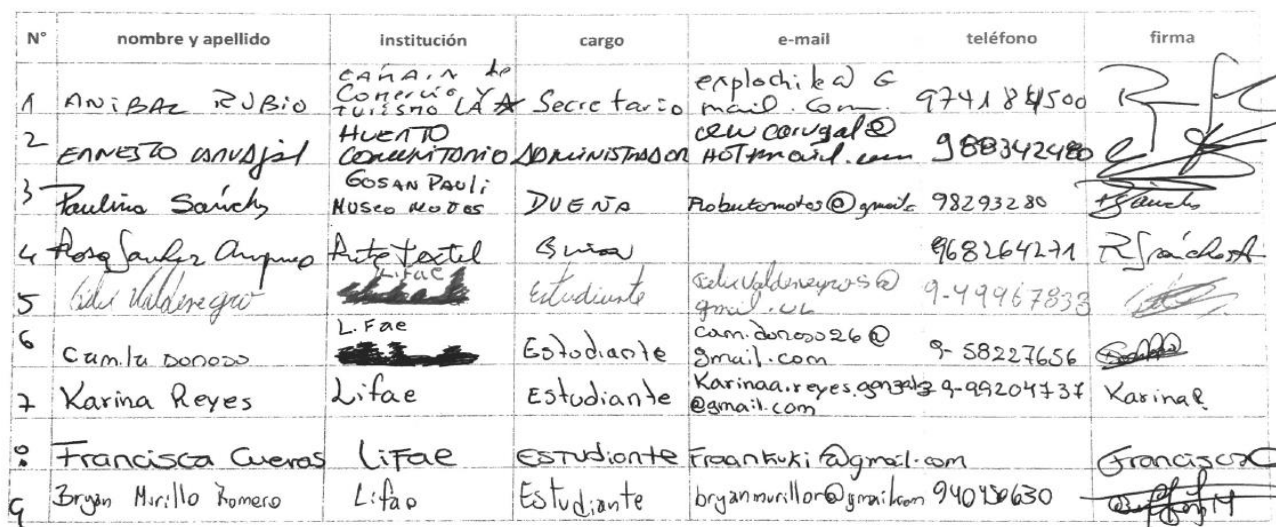 N° nombre y apellido institución cargo e-mail teléfono firma
1 ANiBAL RUBiO CAMARA de Comercio y TURISMO LAJA Secretario explochile@Gmail.com. 974184500
2 ERNESTO CARVAJAL HUERTO COMUNITARIO ADMINISTRADOR @HOTmail.com 988342480
3 Paulina Sánchz GOSAN PAULi MUSEO MOTOS DUEÑA Robutomotos@gmail. 98293280 PSánchz
4 Rosa Sanchez Arte textil Guia 968264271 RSánchezA
5 Valdenegro Lifae Estudiante valdenegros@gmail.cl 9-49967833
6 Camila DONOSO L.Fae Estudiante cam.donoso26@gmail.com 9-58227656
7 Karina Reyes Lifae Estudiante Karinaa.reyes.gonzalz@gmail.com 9-99204737 KarinaR
8 Francisca Cuevas LiFae ESTUDIante Fraankuki@gmail.com FranciscaC
9 Bryan Murillo Romero Lifae Estudiante bryanmurillor@gmail.com 940450630